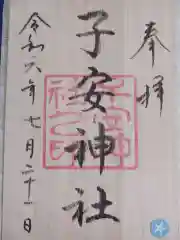 奉拝
子安神社
令和六年七月二十一日